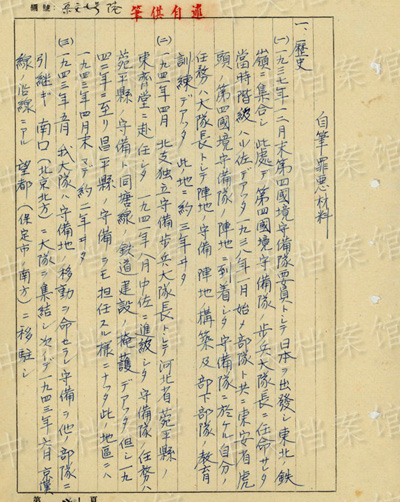 編號:
筆供自述
自筆罪惡材料
一、歷史
(一)一九三七年一二月末第四國境守備隊要員トシテ日本ヲ出發シ東北鉄
嶺ニ集合シ此處デ第四國境守備隊ノ歩兵大隊長ニ任命セラレ
当時階級ハ少佐デアッタ 一九三八年三月始メ部隊ト共ニ東安省虎
頭ノ第四國境守備隊ノ陣地ニ到着シタ守備隊ニ於ケル自分ノ
任務ハ大隊長トシテ陣地ノ守備陣地構築及部下部隊ノ教育
訓練デアッタ 此地ニ約三年ヰタ
(二)一九四一年四月 北支独立守備歩兵大隊長トシテ河北省苑平縣ノ
東齊堂ニ赴任シタ 一九四一年八月中佐ニ進級シタ守備隊ノ任務ハ
苑平縣ノ守備ト同塘線ノ鉄道建設ノ掩護デアッタ但シ一九
四二年ニ至リ昌平縣ノ守備ヲモ担任スル樣ニナッタ此ノ地区ニハ
一九四三年四月末マデ約二年ヰタ
(三)一九四三年五月 我大隊ハ守備地ノ移動ヲ命セラレ守備ヲ他ノ部隊ニ
引継ギ南口(北京北方)ニ大隊ヲ集結シ次テ一九四三年六月京漢
線ノ沿線ニアル望都(保定市ノ南方)ニ移駐シ